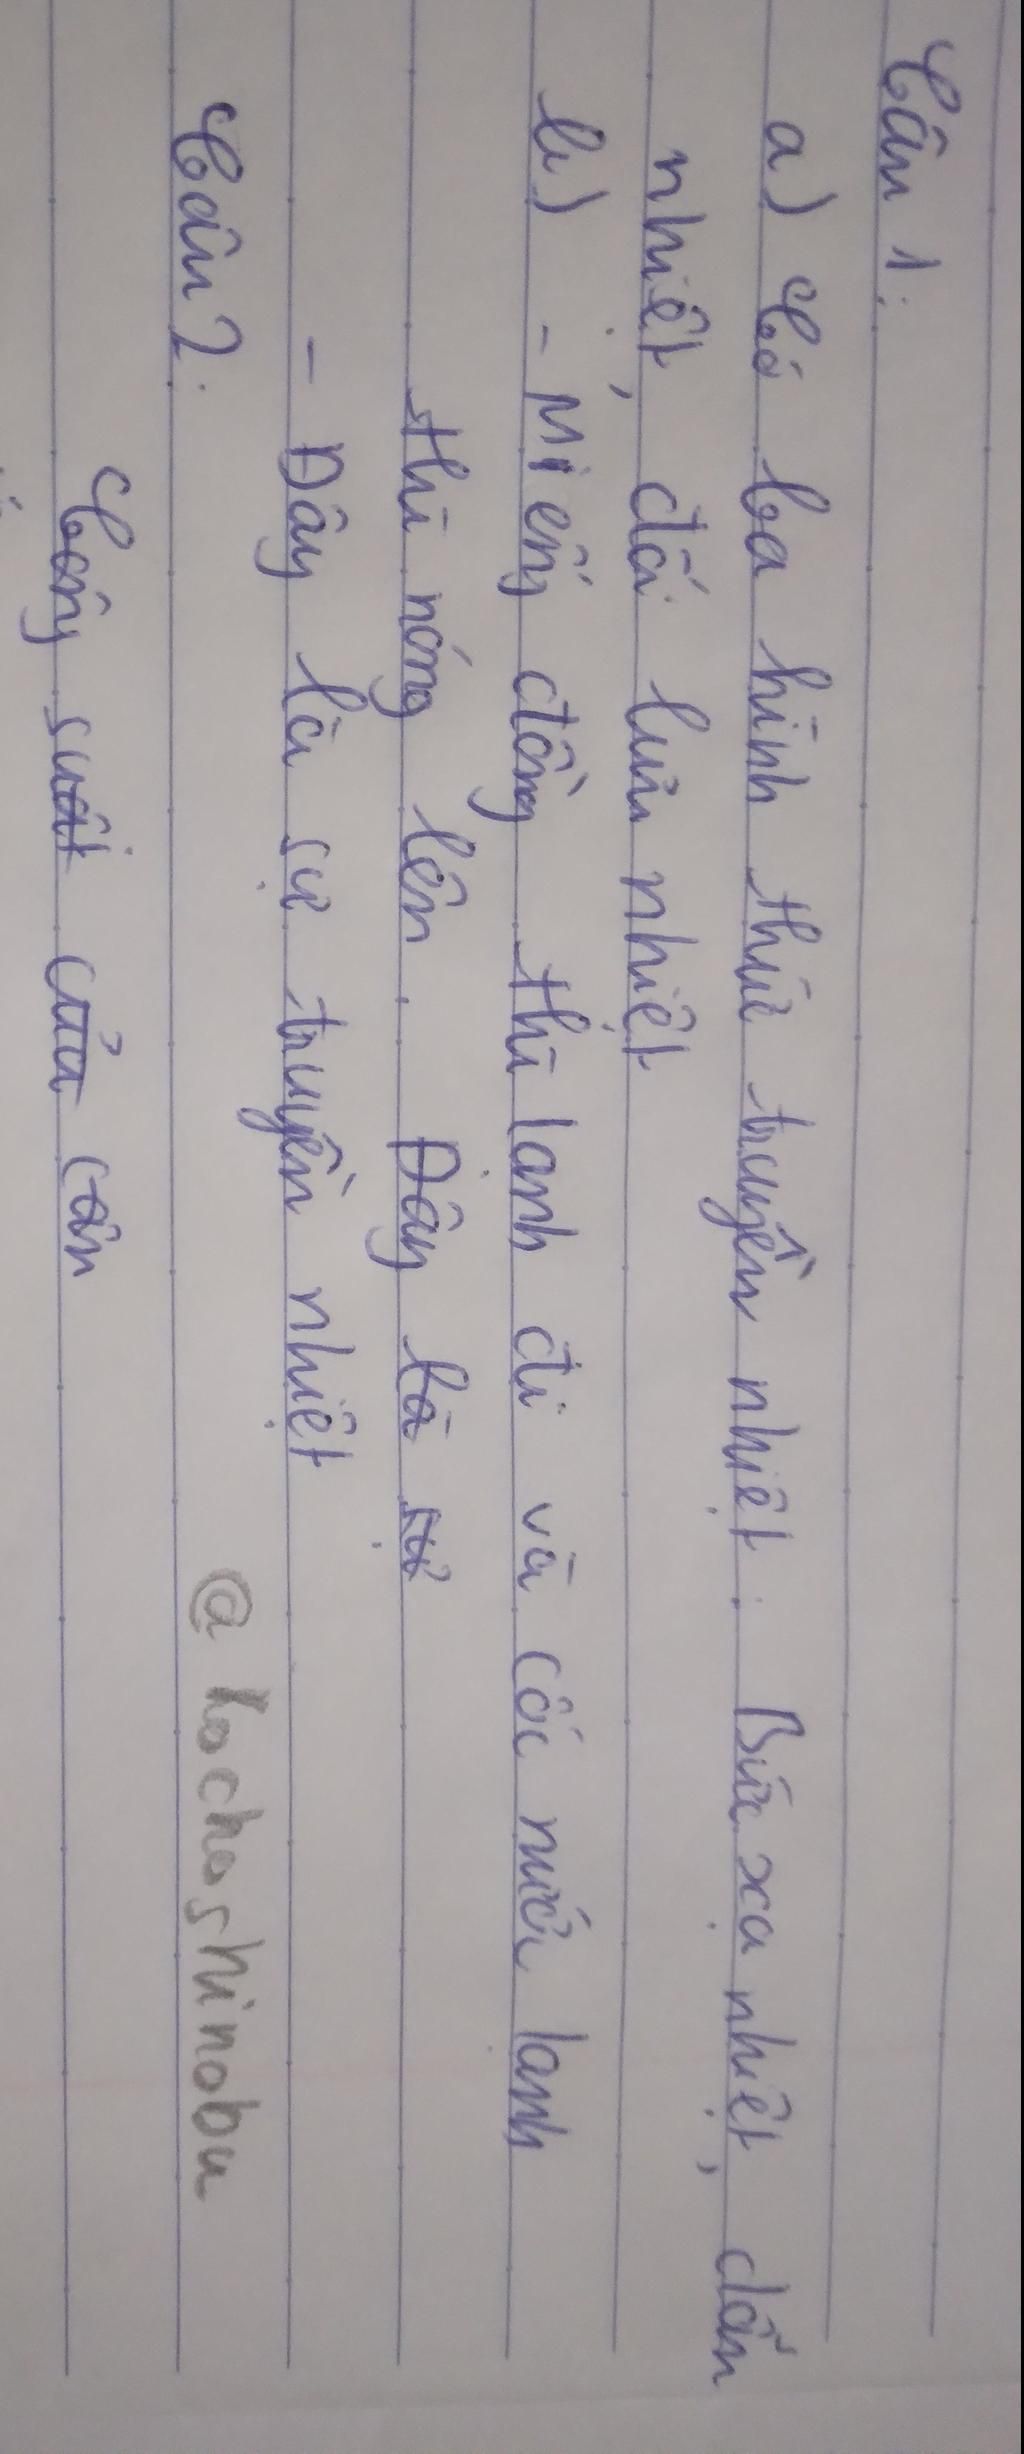 Câu 1:
a) Có ba hình thức truyền nhiệt: Bức xạ nhiệt, dẫn
nhiệt, đối lưu nhiệt
b) - Miếng đồng thì lạnh đi và cốc nước lạnh
thì nóng lên. Đây là sự
- Đây là sự truyền nhiệt
Câu 2:
@kochoshinobu
Công suất của cần